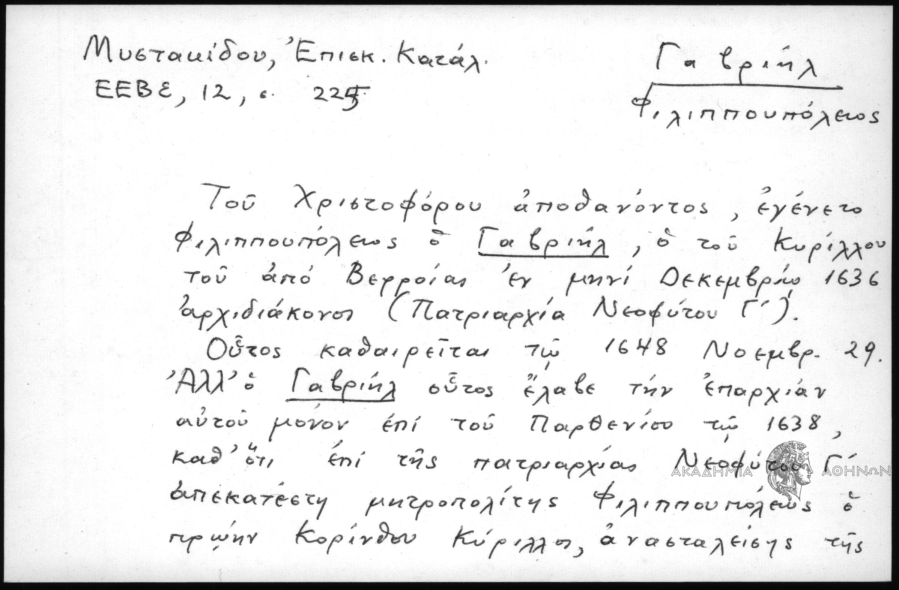 Μυστακίδου, Ἐπισκ. Κατάλ.
ΕΕΒΣ, 12, σ. 225
Γαβριήλ
Φιλιππουπόλεως
Τοῦ Χριστοφόρου ἀποθανόντος, ἐγένετο
Φιλιππουπόλεως ὁ Γαβριήλ, ὁ τοῦ Κυρίλλου
τοῦ ἀπό Βερροίας ἐν μηνί Δεκεμβρίῳ 1636
ἀρχιδιάκονος (Πατριαρχία Νεοφύτου Γ΄).
Οὗτος καθαιρεῖται τῷ 1648 Νοεμβρ. 29.
Ἀλλ' ὁ Γαβριήλ οὗτος ἔλαβε τήν ἐπαρχίαν
αὐτοῦ μόνον ἐπί τοῦ Παρθενίου τῷ 1638,
καθ' ὅτι ἐπί τῆς πατριαρχίας Νεοφύτου Γ΄
ἀπεκατέστη μητροπολίτης Φιλιππουπόλεως ὁ
πρῴην Κορίνθου Κύριλλος, ἀνασταλείσης τῆς
ΑΚΑΔΗΜΙΑ ΑΘΗΝΩΝ